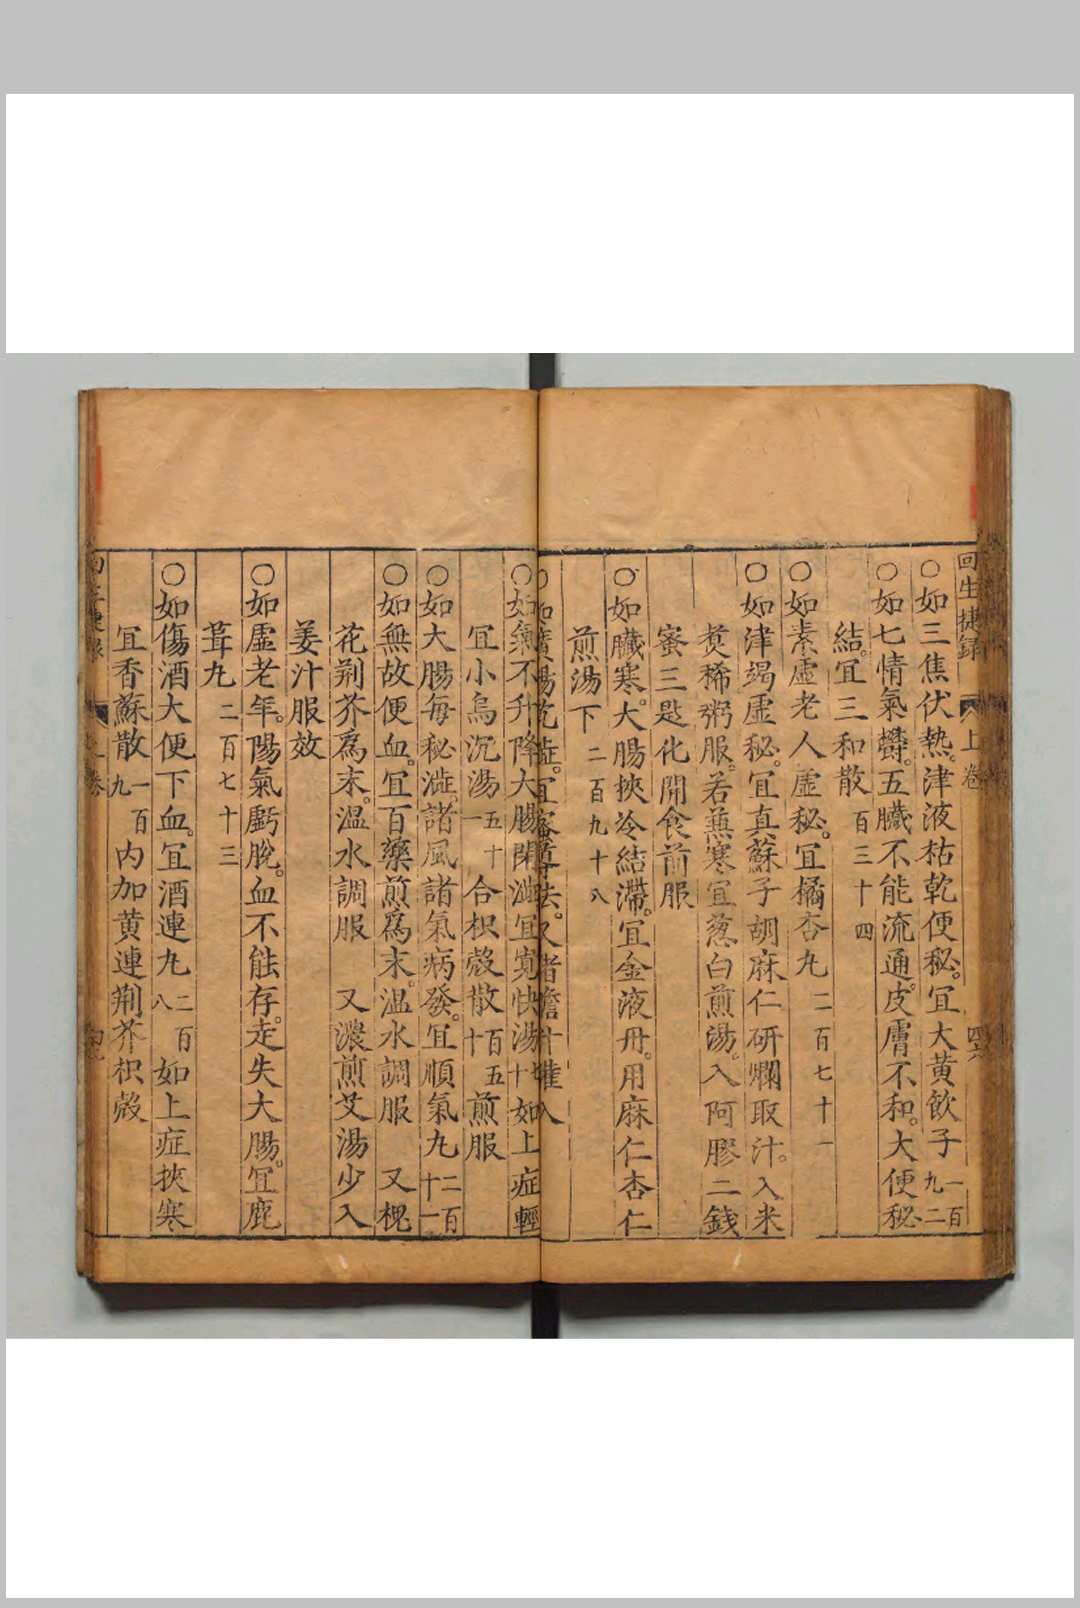 回生捷録 上卷 四六
○如三焦伏熱。津液枯乾便秘。宜大黄飲子一百九二
○如七情氣欝。五臟不能流通。皮膚不和。大便秘
結。宜三和散百三十四
○如素虛老人虛秘。宜橘杏九二百七十一
○如津竭虛秘。宜真蘇子胡麻仁研爛取汁。入米
煑稀粥服。若蕪寒宜葱白煎湯。入阿膠二錢
蜜三匙化開食前服
○如臟寒。大腸挾冷結滯。宜金液丹。用麻仁杏仁
煎湯下二百九十八
○如廣腸乾澁。宜蜜導法。又者膽汁灌入
○如氣不升降大腸閉澁宜寬快湯七十如上症輕
宜小烏沉湯五十一合枳殼散百五十煎服
○如大腸每秘澁。諸風諸氣病發。宜順氣九二百十一
○如無故便血。宜百藥煎為末。温水調服 又槐
花荆芥為末。温水調服 又濃煎艾湯少入
姜汁服效
○如虛老年。陽氣虧脫。血不能存。走失大腸。宜鹿
茸九二百七十三
○如傷酒大便下血。宜酒連九二百八如上症挾寒
宜香蘇散一百九内加黄連荆芥枳殼